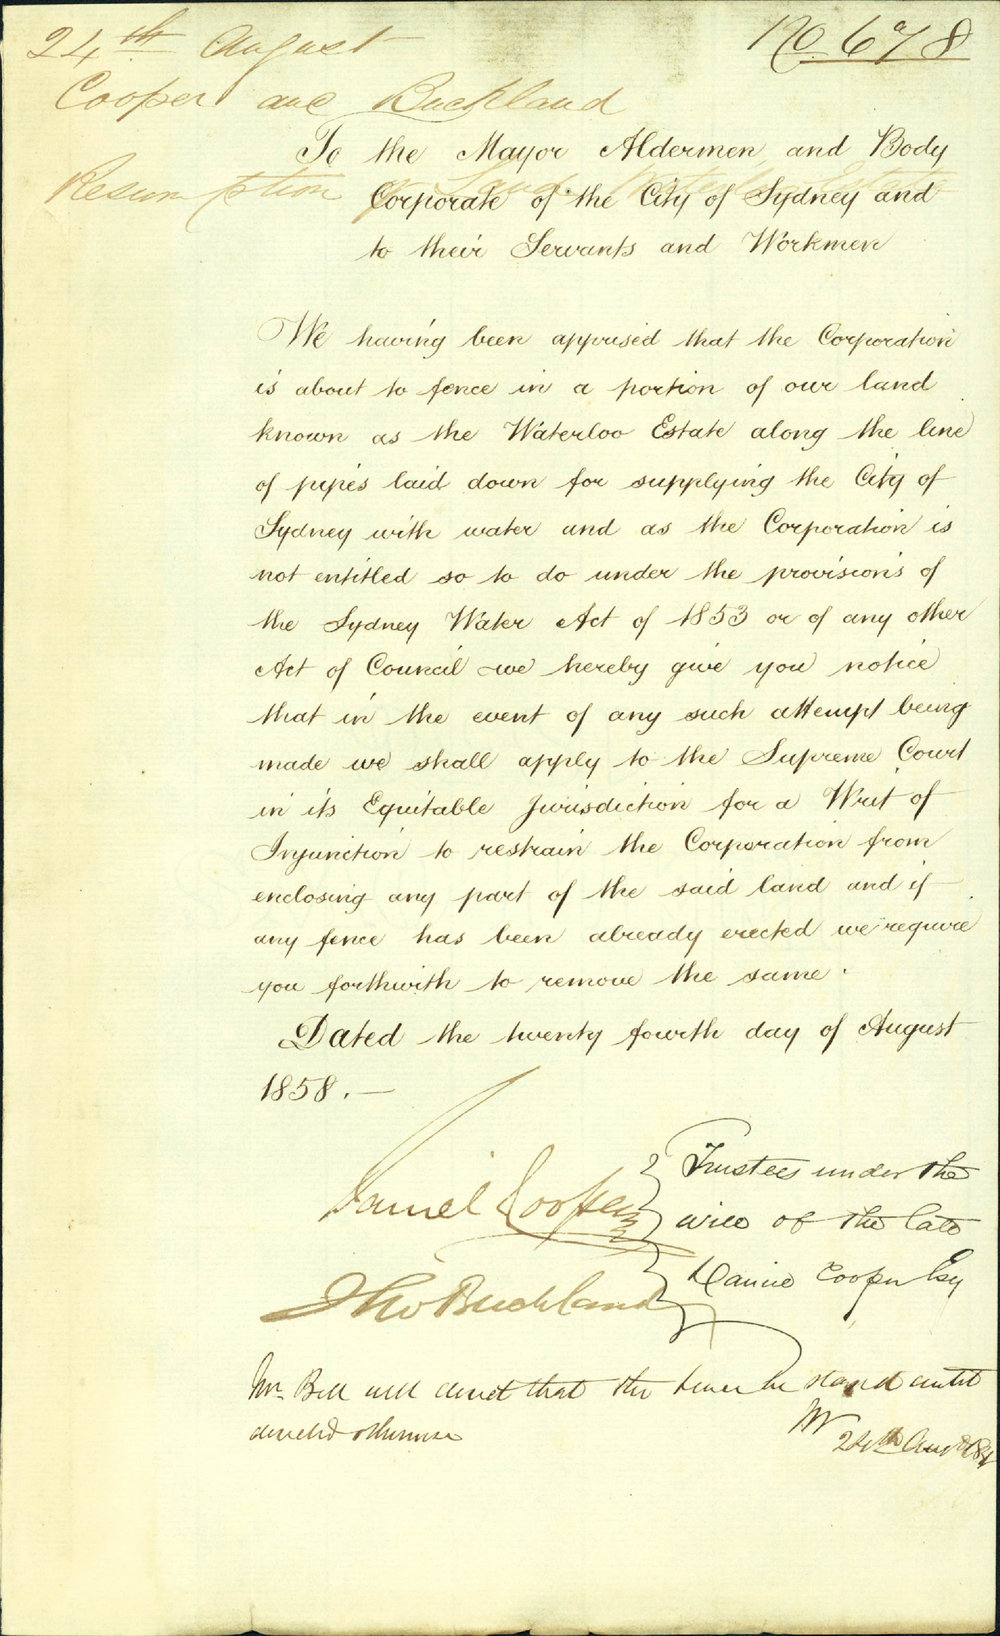 24th August
No 678
Cooper and Buckland
To the Mayor Aldermen and Body
Resumption of Land Waterloo Estate
Corporate of the City of Sydney and
to their Servants and Workmen
We having been apprised that the Corporation
is about to fence in a portion of our land
known as the Waterloo Estate along the line
of pipes laid down for supplying the City of
Sydney with water and as the Corporation is
not entitled so to do under the provisions of
the Sydney Water Act of 1853 or of any other
Act of Council we hereby give you notice
that in the event of any such attempt being
made we shall apply to the Supreme Court
in its Equitable Jurisdiction for a Writ of
Injunction to restrain the Corporation from
enclosing any part of the said land and if
any fence has been already erected we require
you forthwith to remove the same.
Dated the twenty fourth day of August
1858. —
Daniel Cooper
Thos Buckland
Trustees under the
will of the late
Daniel Cooper Esq
Mr. Bell will direct that the fence be stayed until
directed otherwise
24th Augt